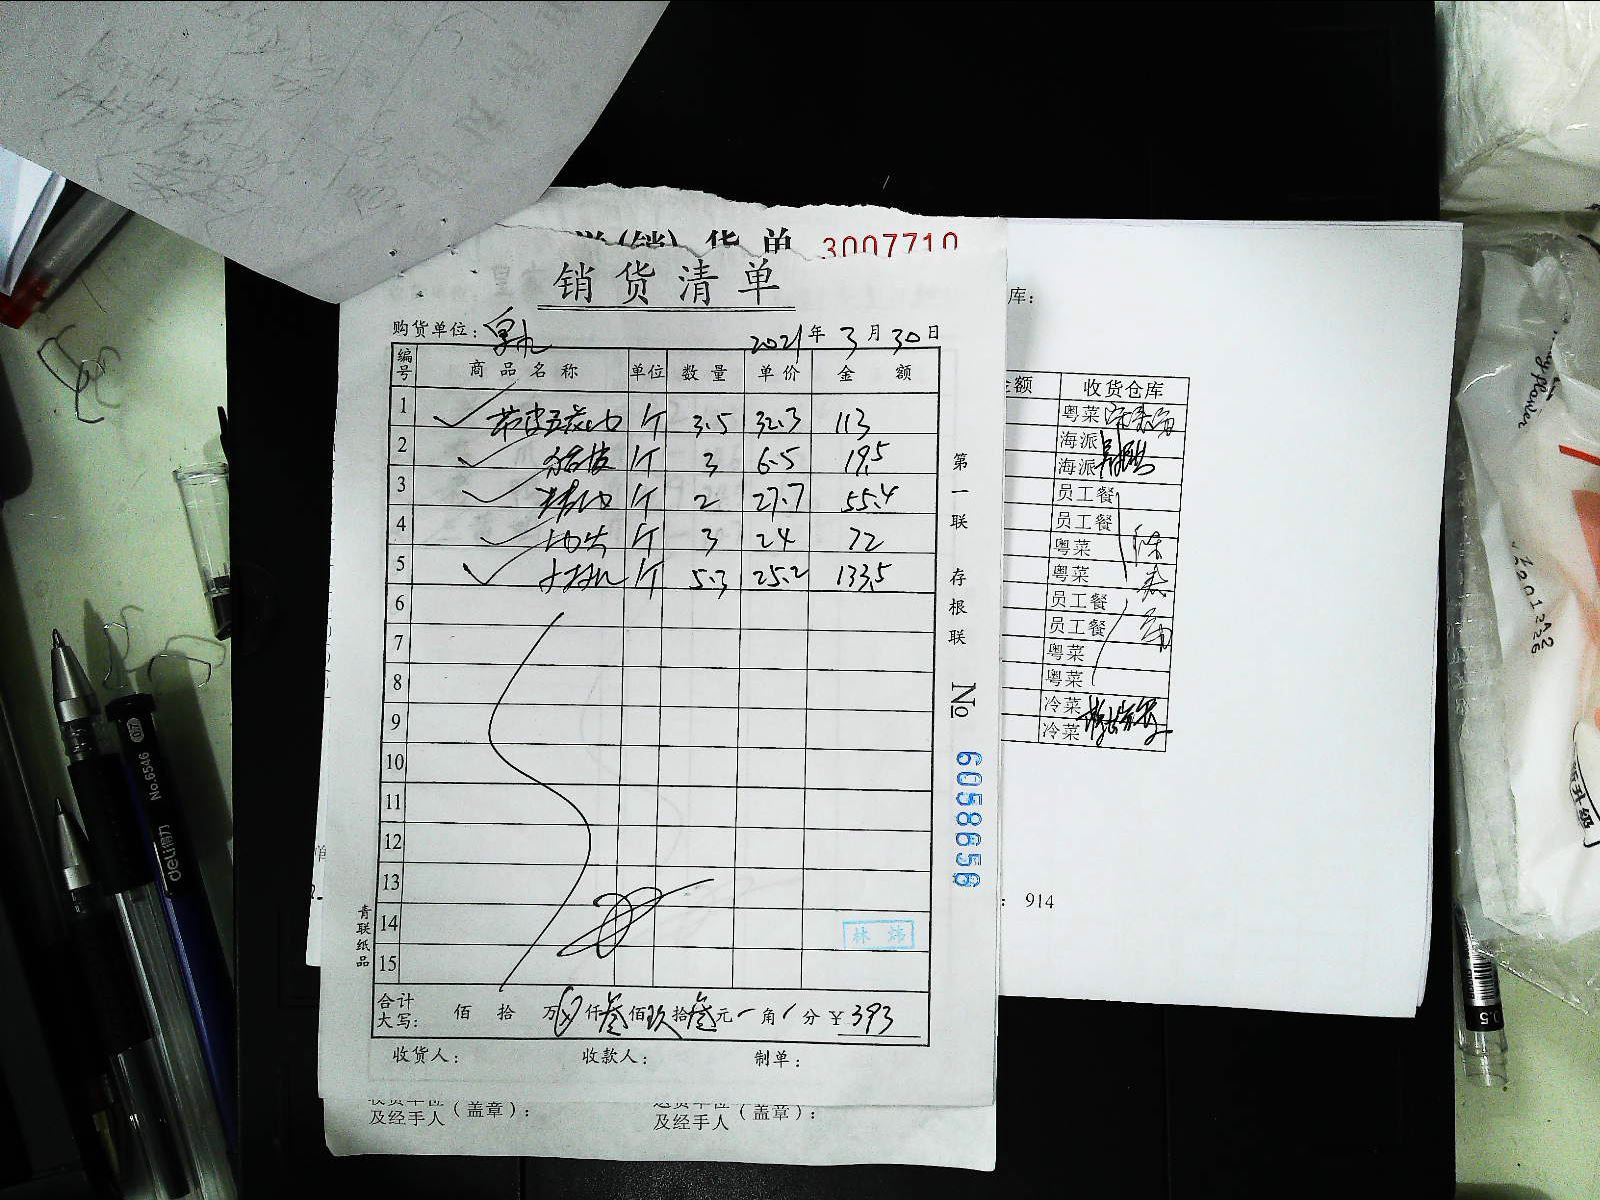 货单 3007710
销货清单
购货单位: 2021年3月30日
编号 商品名称 单位 数量 单价 金额
1 带皮五花肉 斤 3.5 32.3 113
2 斤 3 6.5 19.5
3 精肉 斤 2 27.7 55.4
4 斤 3 24 72
5 大排 斤 5.3 25.2 133.5
6
7
8
9
10
11
12
13
14
15
林炜
合计大写: 佰 拾 万 仟叁佰玖拾叁元 角 分 ¥393
收货人: 收款人: 制单:
第一联 存根联
No 6058656
青联纸品
及经手人(盖章): 及经手人(盖章):
库:
额 收货仓库
粤菜
海派
海派
员工餐
员工餐
粤菜
粤菜
员工餐
员工餐
粤菜
粤菜
冷菜
冷菜
: 914
No.6546
deli得力
0.5
20201226
新升级